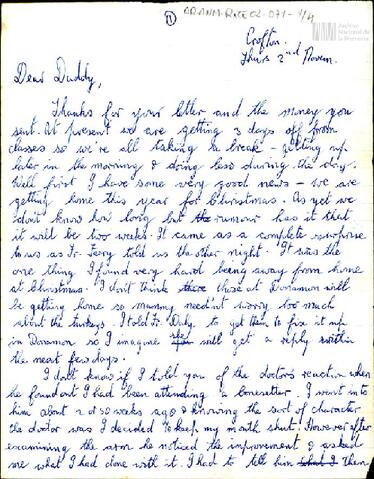 (1) ARANM-RTE02-071-1/4
Archivo
Nacional de
la Memoria
Crofton.
Thurs 2nd Novem.
Dear Daddy,
Thanks for your letter and the money you
sent. At present we are getting 3 days off from
classes so we're all taking a break - getting up
later in the morning & doing less during the day.
Well first I have some very good news - we are
getting home this year for Christmas. As yet we
don't know how long but the rumour has it that
it will be two weeks. It came as a complete surprise
to us as Fr. Terry told us the other night. It was the
one thing I found very hard being away from home
at Christmas. I don't think those at Donamon will
be getting home so mummy needn't worry too much
about the turkeys. I told Fr. Daly to get them to fix it up
in Donamon so I imagine will get a reply within
the next few days.
I don't know if I told you of the doctor's reaction when
he found out I had been attending a bonesetter. I went into
him about 2 or 3 weeks ago & knowing the sort of character
the doctor was I decided to keep my mouth shut. However after
examining the arm he noticed the improvement & asked
me what I had done with it. I had to tell him then